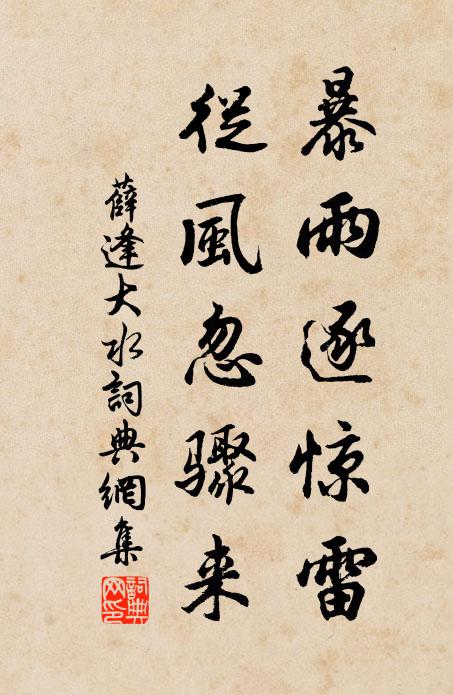 暴雨逐惊雷
從風忽驟来
薛逢大水詞典網集
詞典網印